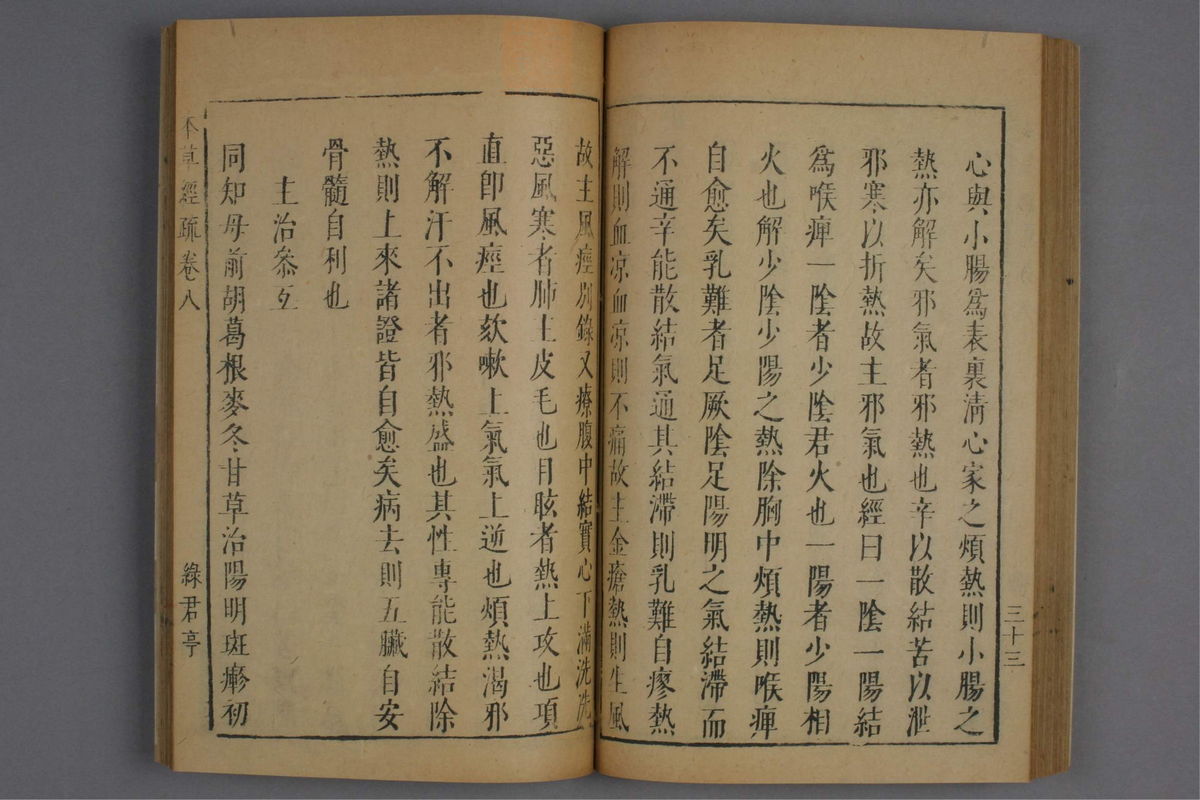 三十三
心與小腸爲表裏淸心家之煩熱則小腸之
熱亦解矣邪氣者邪熱也辛以散結苦以泄
邪寒以折熱故主邪氣也經曰一陰一陽結
爲喉痺一陰者少陰君火也一陽者少陽相
火也解少陰少陽之熱除胸中煩熱則喉痺
自愈矣乳難者足厥陰足陽明之氣結滯而
不通辛能散結氣通其結滯則乳難自瘳熱
解則血凉血凉則不痛故主金瘡熱則生風
故主風痙別錄又療腹中結實心下滿洗洗
惡風寒者肺主皮毛也目眩者熱上攻也項
直卽風痙也欬嗽上氣氣上逆也煩熱渴邪
不解汗不出者邪熱盛也其性專能散結除
熱則上來諸證皆自愈矣病去則五臟自安
骨髓自利也
主治叅互
同知母前胡葛根麥冬甘草治陽明斑瘮初
本草經疏卷八
綠君亭